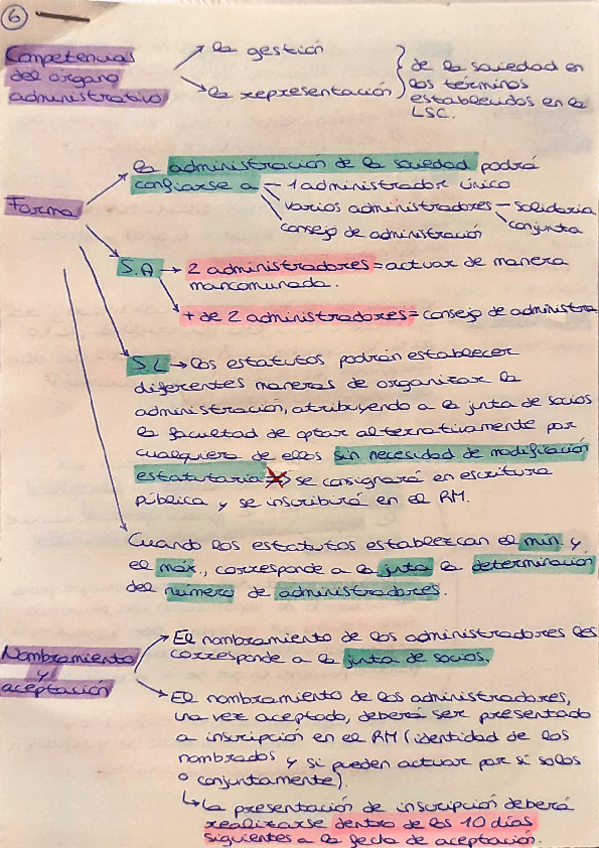 6
Competencias
del órgano
administrativo
la gestión
la representación
de la sociedad en
los términos
establecidos en la
LSC.
Forma
la administración de la sociedad podrá
confiarse a - 1 administrador único
varios administradores - solidaria
conjunta
consejo de administración
S.A → 2 administradores = actuar de manera
mancomunada.
+ de 2 administradores = consejo de administra
S.L → los estatutos podrán establecer
diferentes maneras de organizar la
administración, atribuyendo a la junta de socios
la facultad de optar alternativamente por
cualquiera de ellos sin necesidad de modificación
estatutaria → se consignará en escritura
pública y se inscribirá en el RM.
Cuando los estatutos establezcan el mín y
el máx., corresponde a la junta la determinación
del número de administradores.
Nombramiento
y
aceptación
El nombramiento de los administradores les
corresponde a la junta de socios.
El nombramiento de los administradores,
una vez aceptado, deberá ser presentado
a inscripción en el RM (identidad de los
nombrados y si pueden actuar por sí solos
o conjuntamente).
↳ la presentación de inscripción deberá
realizarse dentro de los 10 días
siguientes a la fecha de aceptación.